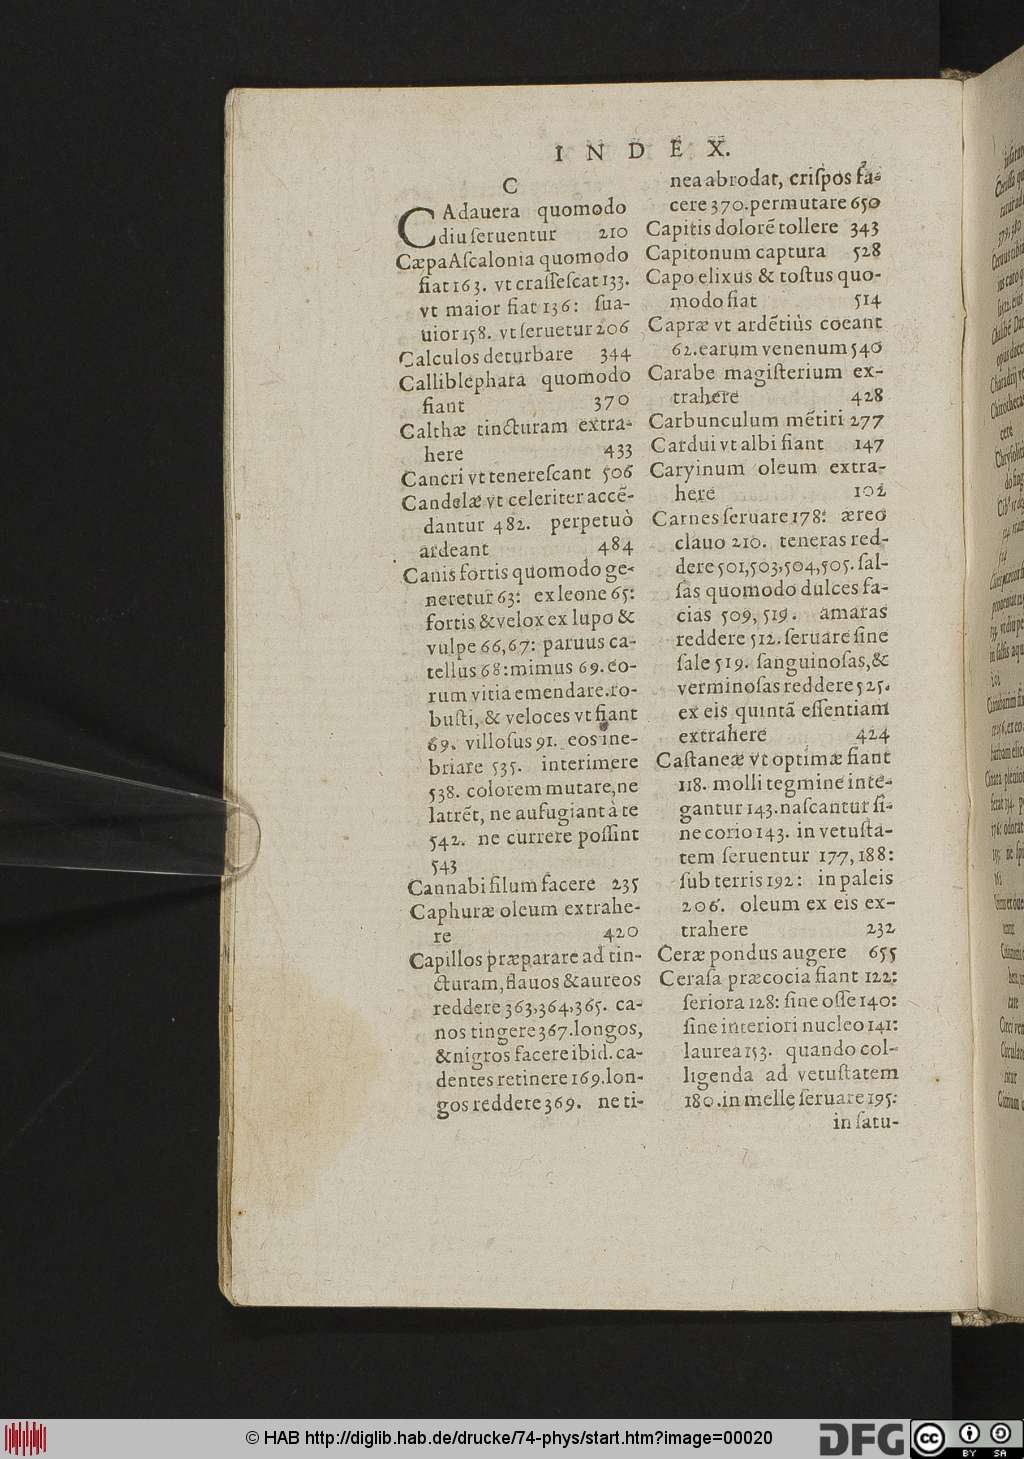 INDEX.
C
CAdauera quomodo
diu ſeruentur 210
Cæpa Aſcalonia quomodo
fiat 163. vt craſſeſcat 133.
vt maior fiat 136: ſua-
uior 158. vt ſeruetur 206
Calculos deturbare 344
Calliblephara quomodo
fiant 370
Calthæ tincturam extra-
here 433
Cancri vt tenereſcant 506
Candelæ vt celeriter accẽ-
dantur 482. perpetuò
ardeant 484
Canis fortis quomodo ge-
neretur 63: ex leone 65:
fortis & velox ex lupo &
vulpe 66, 67: paruus ca-
tellus 68: mimus 69. eo-
rum vitia emendare. ro-
buſti, & veloces vt fiant
69. villoſus 91. eos ine-
briare 535. interimere
538. colorem mutare, ne
latrẽt, ne aufugiant à te
542. ne currere poſſint
543
Cannabi filum facere 235
Caphuræ oleum extrahe-
re 420
Capillos præparare ad tin-
cturam, flauos & aureos
reddere 363, 364, 365. ca-
nos tingere 367. longos,
& nigros facere ibid. ca-
dentes retinere 169. lon-
gos reddere 369. ne ti-
nea abrodat, criſpos fa-
cere 370. permutare 650
Capitis dolorẽ tollere 343
Capitonum captura 528
Capo elixus & toſtus quo-
modo fiat 514
Capræ vt ardẽtiùs coeant
62. earum venenum 540
Carabe magiſterium ex-
trahere 428
Carbunculum mẽtiri 277
Cardui vt albi fiant 147
Caryinum oleum extra-
here 102
Carnes ſeruare 178: æreo
clauo 210. teneras red-
dere 501, 503, 504, 505. ſal-
ſas quomodo dulces fa-
cias 509, 519. amaras
reddere 512. ſeruare ſine
ſale 519. ſanguinoſas, &
verminoſas reddere 525.
ex eis quintã eſſentiam
extrahere 424
Caſtaneæ vt optimæ fiant
118. molli tegmine inte-
gantur 143. naſcantur ſi-
ne corio 143. in vetuſta-
tem ſeruentur 177, 188:
ſub terris 192: in paleis
206. oleum ex eis ex-
trahere 232
Ceræ pondus augere 655
Ceraſa præcocia fiant 122:
ſeriora 128: ſine oſſe 140:
ſine interiori nucleo 141:
laurea 153. quando col-
ligenda ad vetuſtatem
180. in melle ſeruare 195:
in ſatu-
© HAB http://diglib.hab.de/drucke/74-phys/start.htm?image=00020
DFG
cc
BY SA